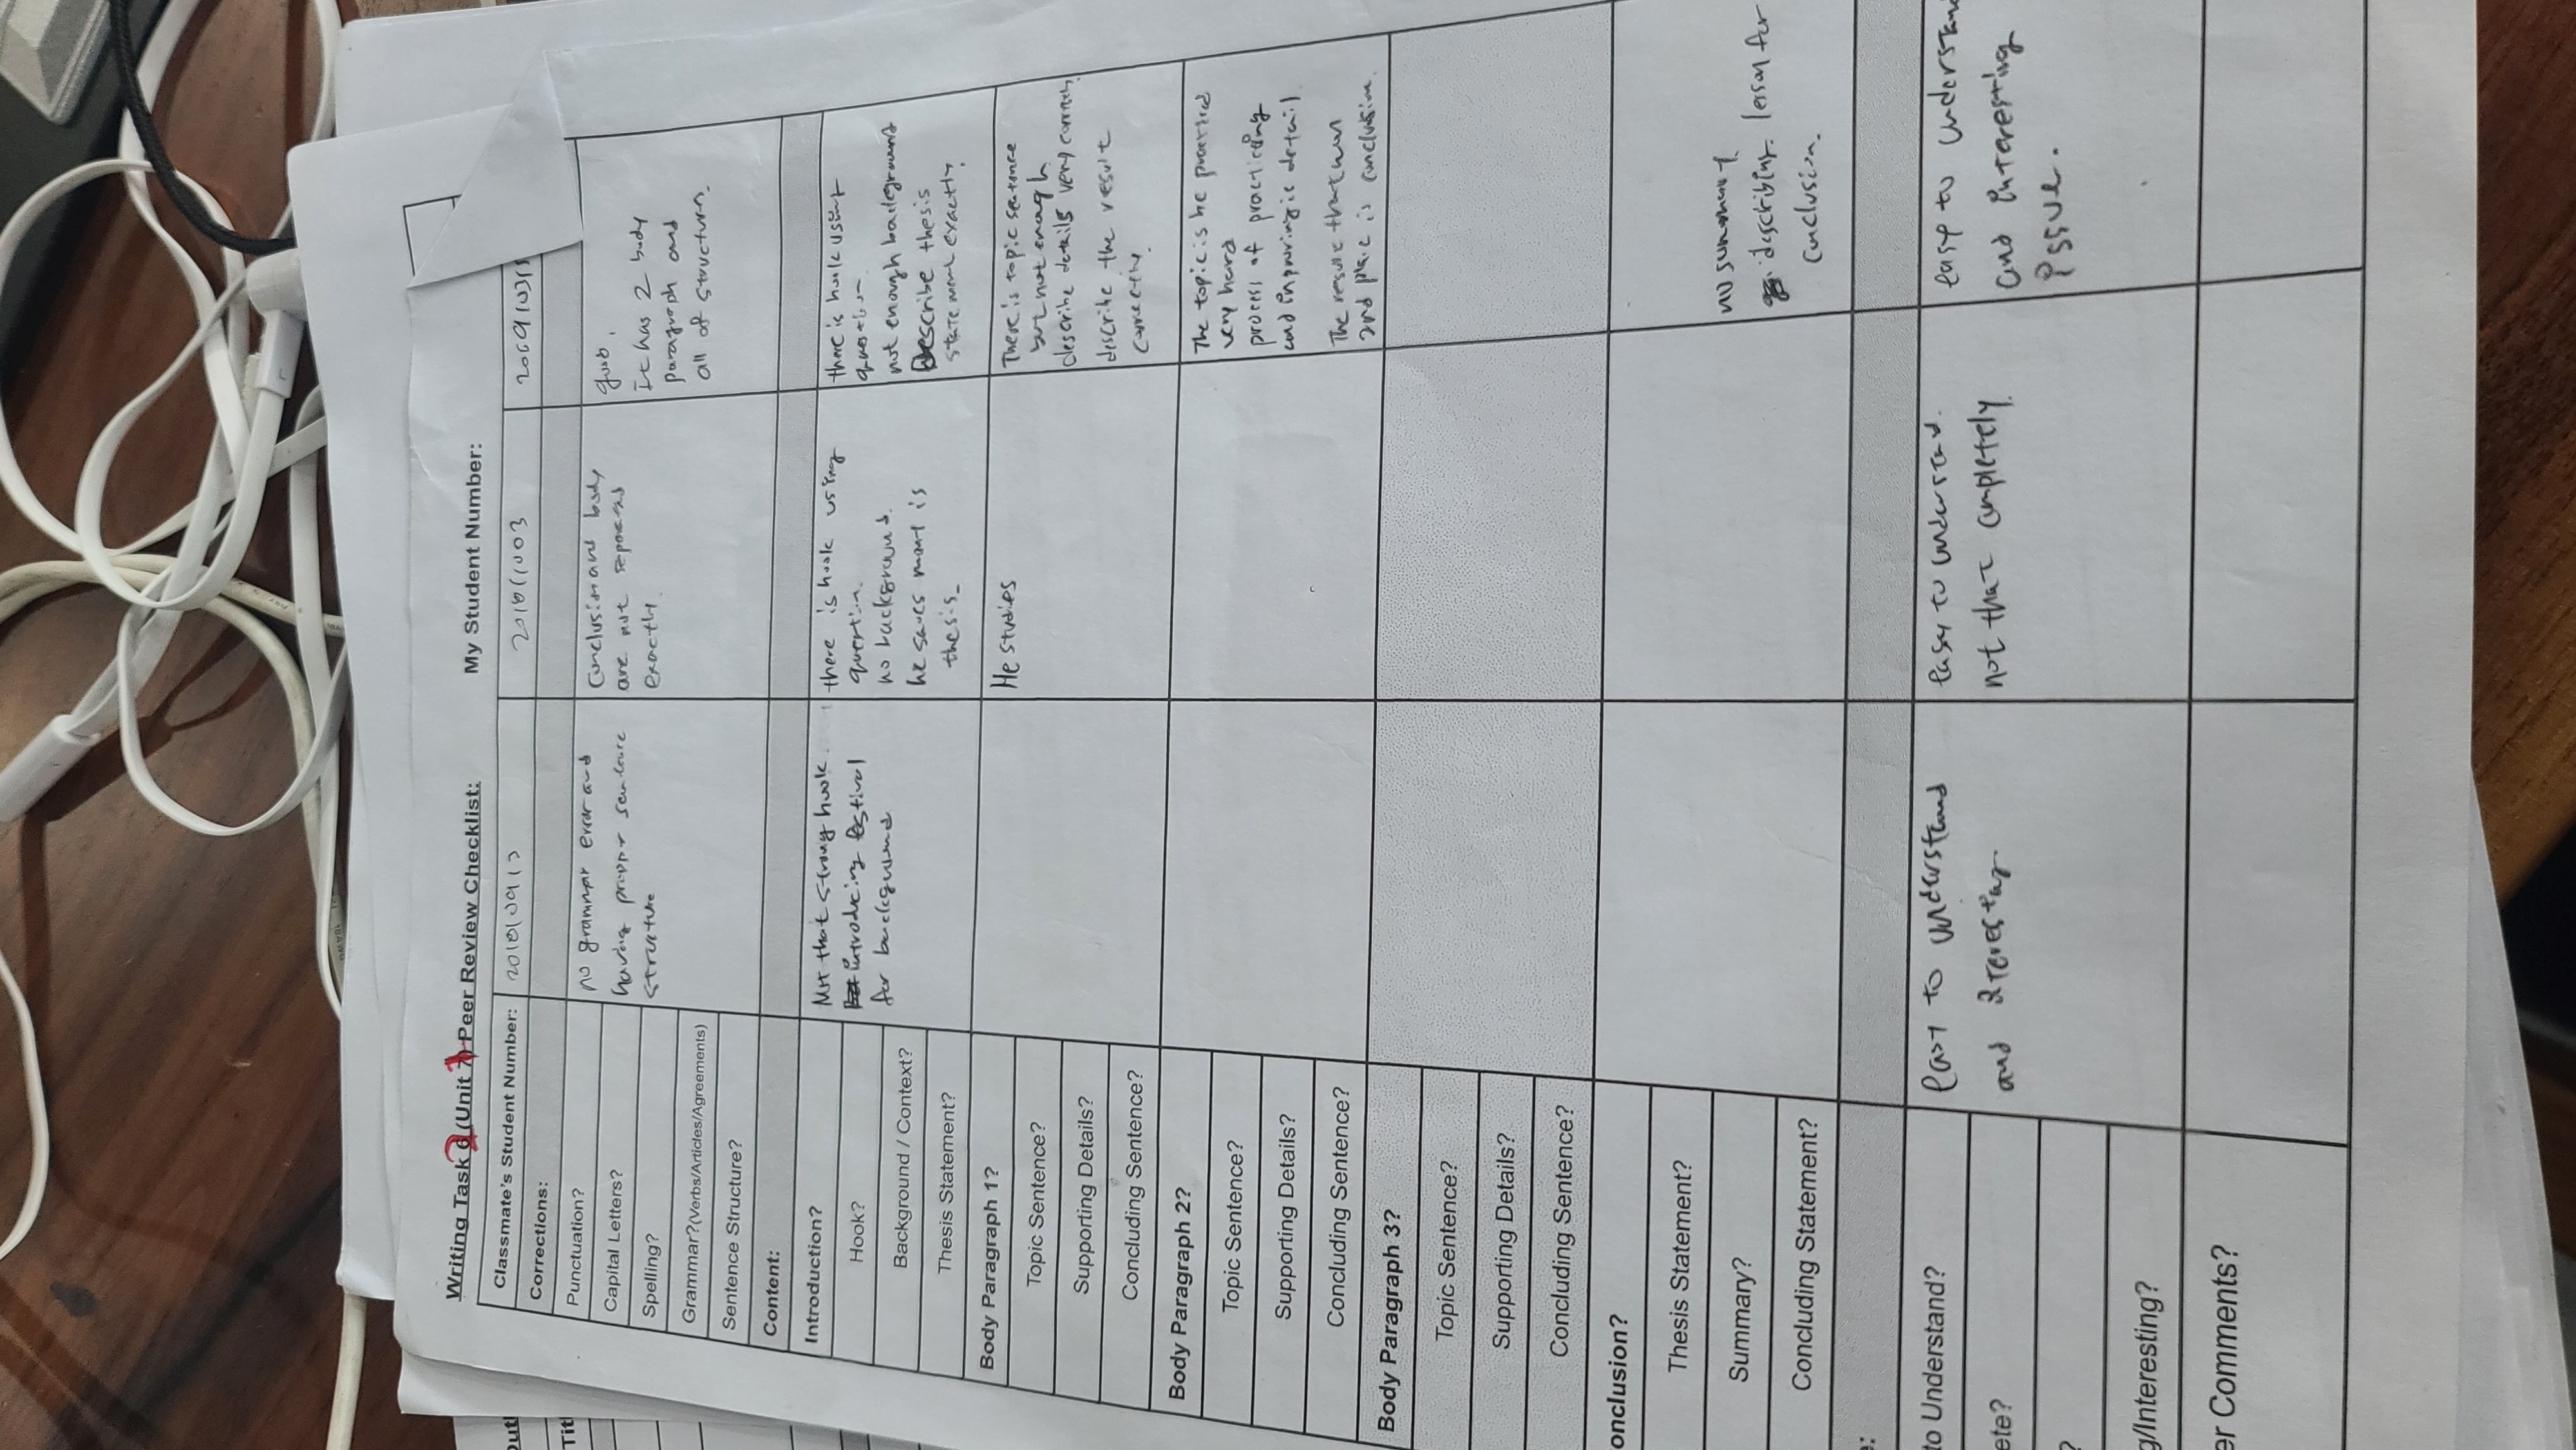 Writing Task 2 (Unit 1) Peer Review Checklist: My Student Number:
Classmate's Student Number:
Corrections:
Punctuation?
Capital Letters?
Spelling?
Grammar?(Verbs/Articles/Agreements)
Sentence Structure?
no grammar error and
having proper sentence
structure
Conclusion and body
are not
exactly.
good.
It has 2 body
paragraph and
all of
Content:
Introduction?
Hook?
Background / Context?
Thesis Statement?
Not that strong hook.
introducing festival
for background
there is hook using
question.
no background.
he saves is
thesis.
there is hook using
question.
not enough background
Describe thesis
statement exactly.
Body Paragraph 1?
Topic Sentence?
Supporting Details?
Concluding Sentence?
He studies
There is topic sentence
but not enough
describe details very correctly.
describe the result
correctly.
Body Paragraph 2?
Topic Sentence?
Supporting Details?
Concluding Sentence?
The topic is he practiced
very hard
process of practicing
and is detail.
The result that won
2nd place is conclusion.
Body Paragraph 3?
Topic Sentence?
Supporting Details?
Concluding Sentence?
onclusion?
Thesis Statement?
Summary?
Concluding Statement?
no summary.
describing lesson for
conclusion.
e:
to Understand?
ete?
?
g/Interesting?
easy to understand
and
easy to understand.
not that completely.
easy to understand
and interesting
issue.
er Comments?